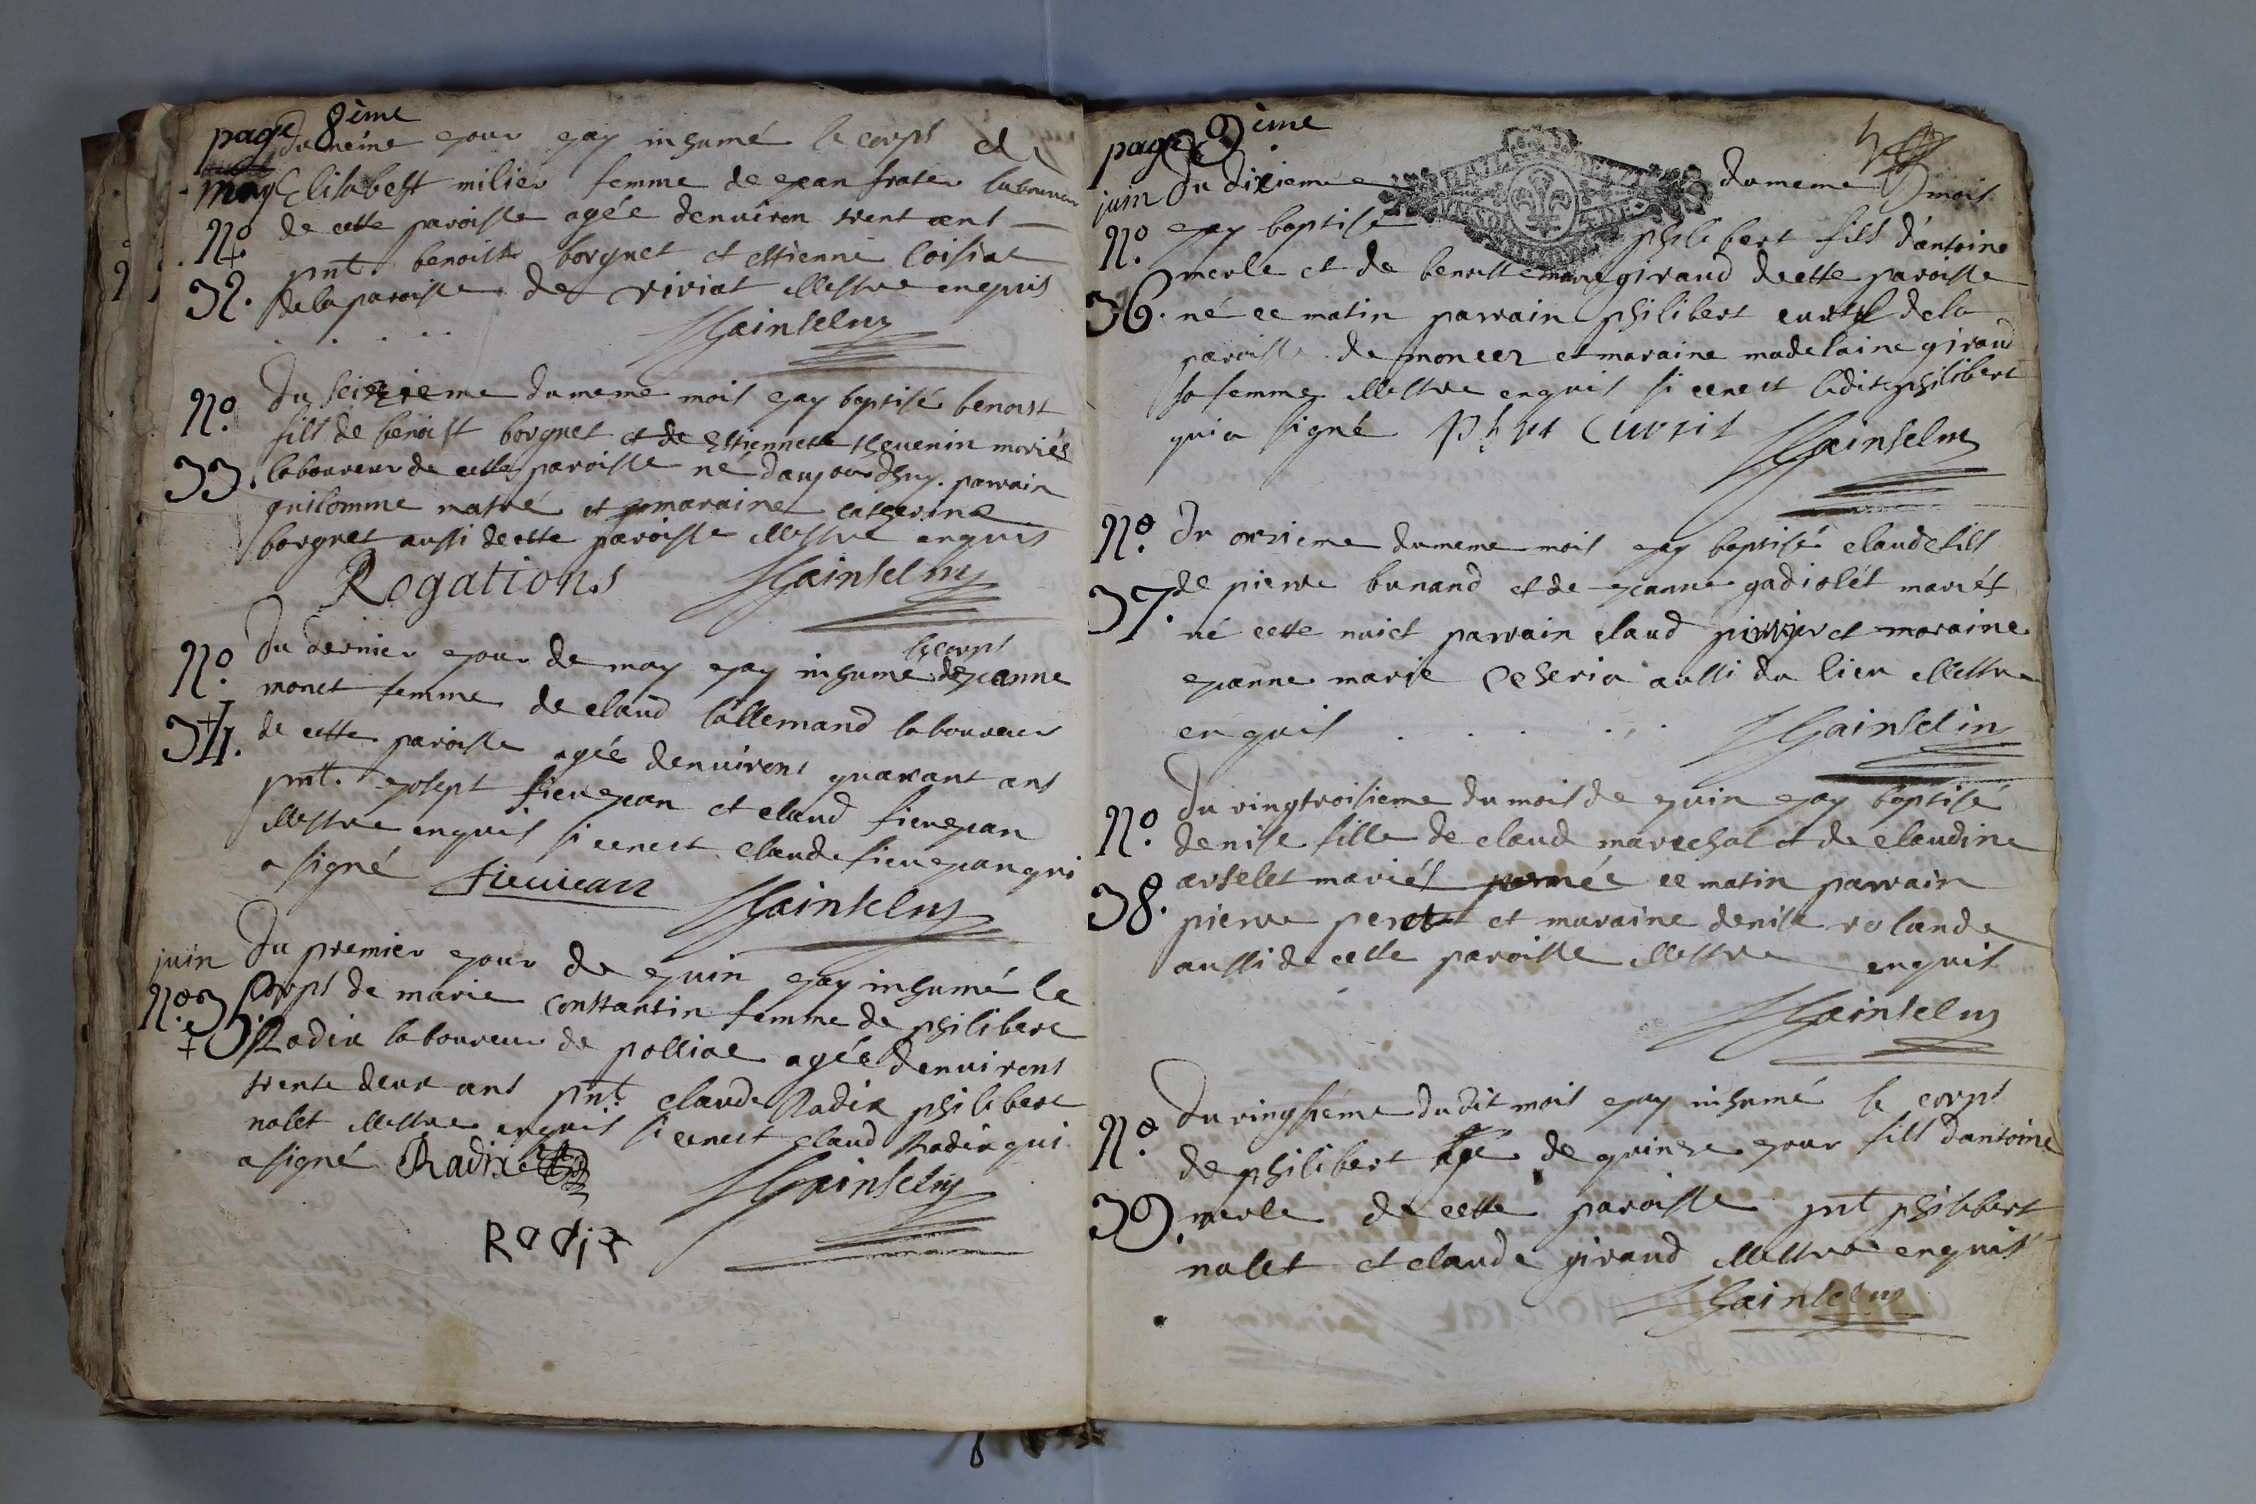 page 8ème
du meme jour jay inhumé le corps de
may Elisabeht milier femme de jean frater laboureur
N.º de cette paroisse agée denuiron trent ans
pnt. benoist borgnet et estienne loisiat
32. de la paroisse de viriat illestre enquis
Hainselin
N.º du seizieme du meme mois jay baptisé benoist
fils de benoist borgnet et de Estiennette theuenin mariés
33. laboureur de cette paroisse né daujourdhuy. parrain
guilomme natré et maraine catherine
borgnet aussi de cette paroisse illestre enquis
Rogations Hainselin
le corps
N.º du dernier jour de may jay inhumé de jeanne
monet femme de claud lallemand laboureur
34. de cette paroisse agée denuirons quarant ans
pnt. josept fieujean et claud fieujean
illestre enquis si cenest claude fieujean qui
a signé fieuiean Hainselin
juin du premier jour de juin jay inhumé le
N.º 35. corps de marie constantin femme de philibert
Radix laboureur de polliac agée denuirons
trente deux ans pnt. claude Radix philibert
nalet illestre enquis si cenest claud Radix qui
a signé Radix
Hainselin
Radix
page 9ème
juin du dixieme du meme mois
N.º jay baptisé philebert fils dantoine
merle et de benoiste marie giraud de cette paroisse
36. né ce matin parrain philibert curtil de la
paroisse de moncez et maraine madelaine giraud
sa femme illestre enquis si cenest ledit philibert
qui a signé phbt Curtil Hainselin
N.º du onzieme du meme mois jay baptisé claude fils
de pierre bunand et de jeanne gadiolét mariés
37. né cette nuict parrain claud et maraine
jeanne marie Ceseria aussi du lieu illestre
enquis Hainselin
N.º du vingtroisieme du mois de juin jay baptisé
denise fille de claud marechal et de claudine
38. arselet mariés née ce matin parrain
pierre peret et maraine denise rolande
aussi de cette paroisse illestre enquis
Hainselin
N.º du vingsieme dudit mois jay inhumé le corps
de philibert agé de quinze jour fils dantoine
39. merle de cette paroisse pnt philibert
nalet et claude giraud illestre enquis
Hainselin